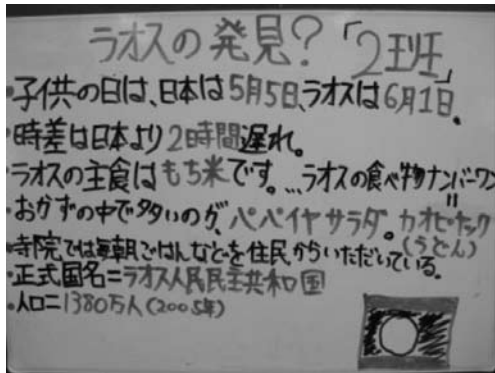 ラオスの発見?「2班」
・子供の日は、日本は5月5日、ラオスは6月1日。
・時差は日本より2時間遅れ。
・ラオスの主食はもち米です。…ラオスの食べ物ナンバーワン
・おかずの中で多いのが、パパイヤサラダ。カオピヤック
(うどん)
・寺院では毎朝ごはんなどを住民からいただいている。
・正式国名=ラオス人民民主共和国
・人口=1380万人(2005年)